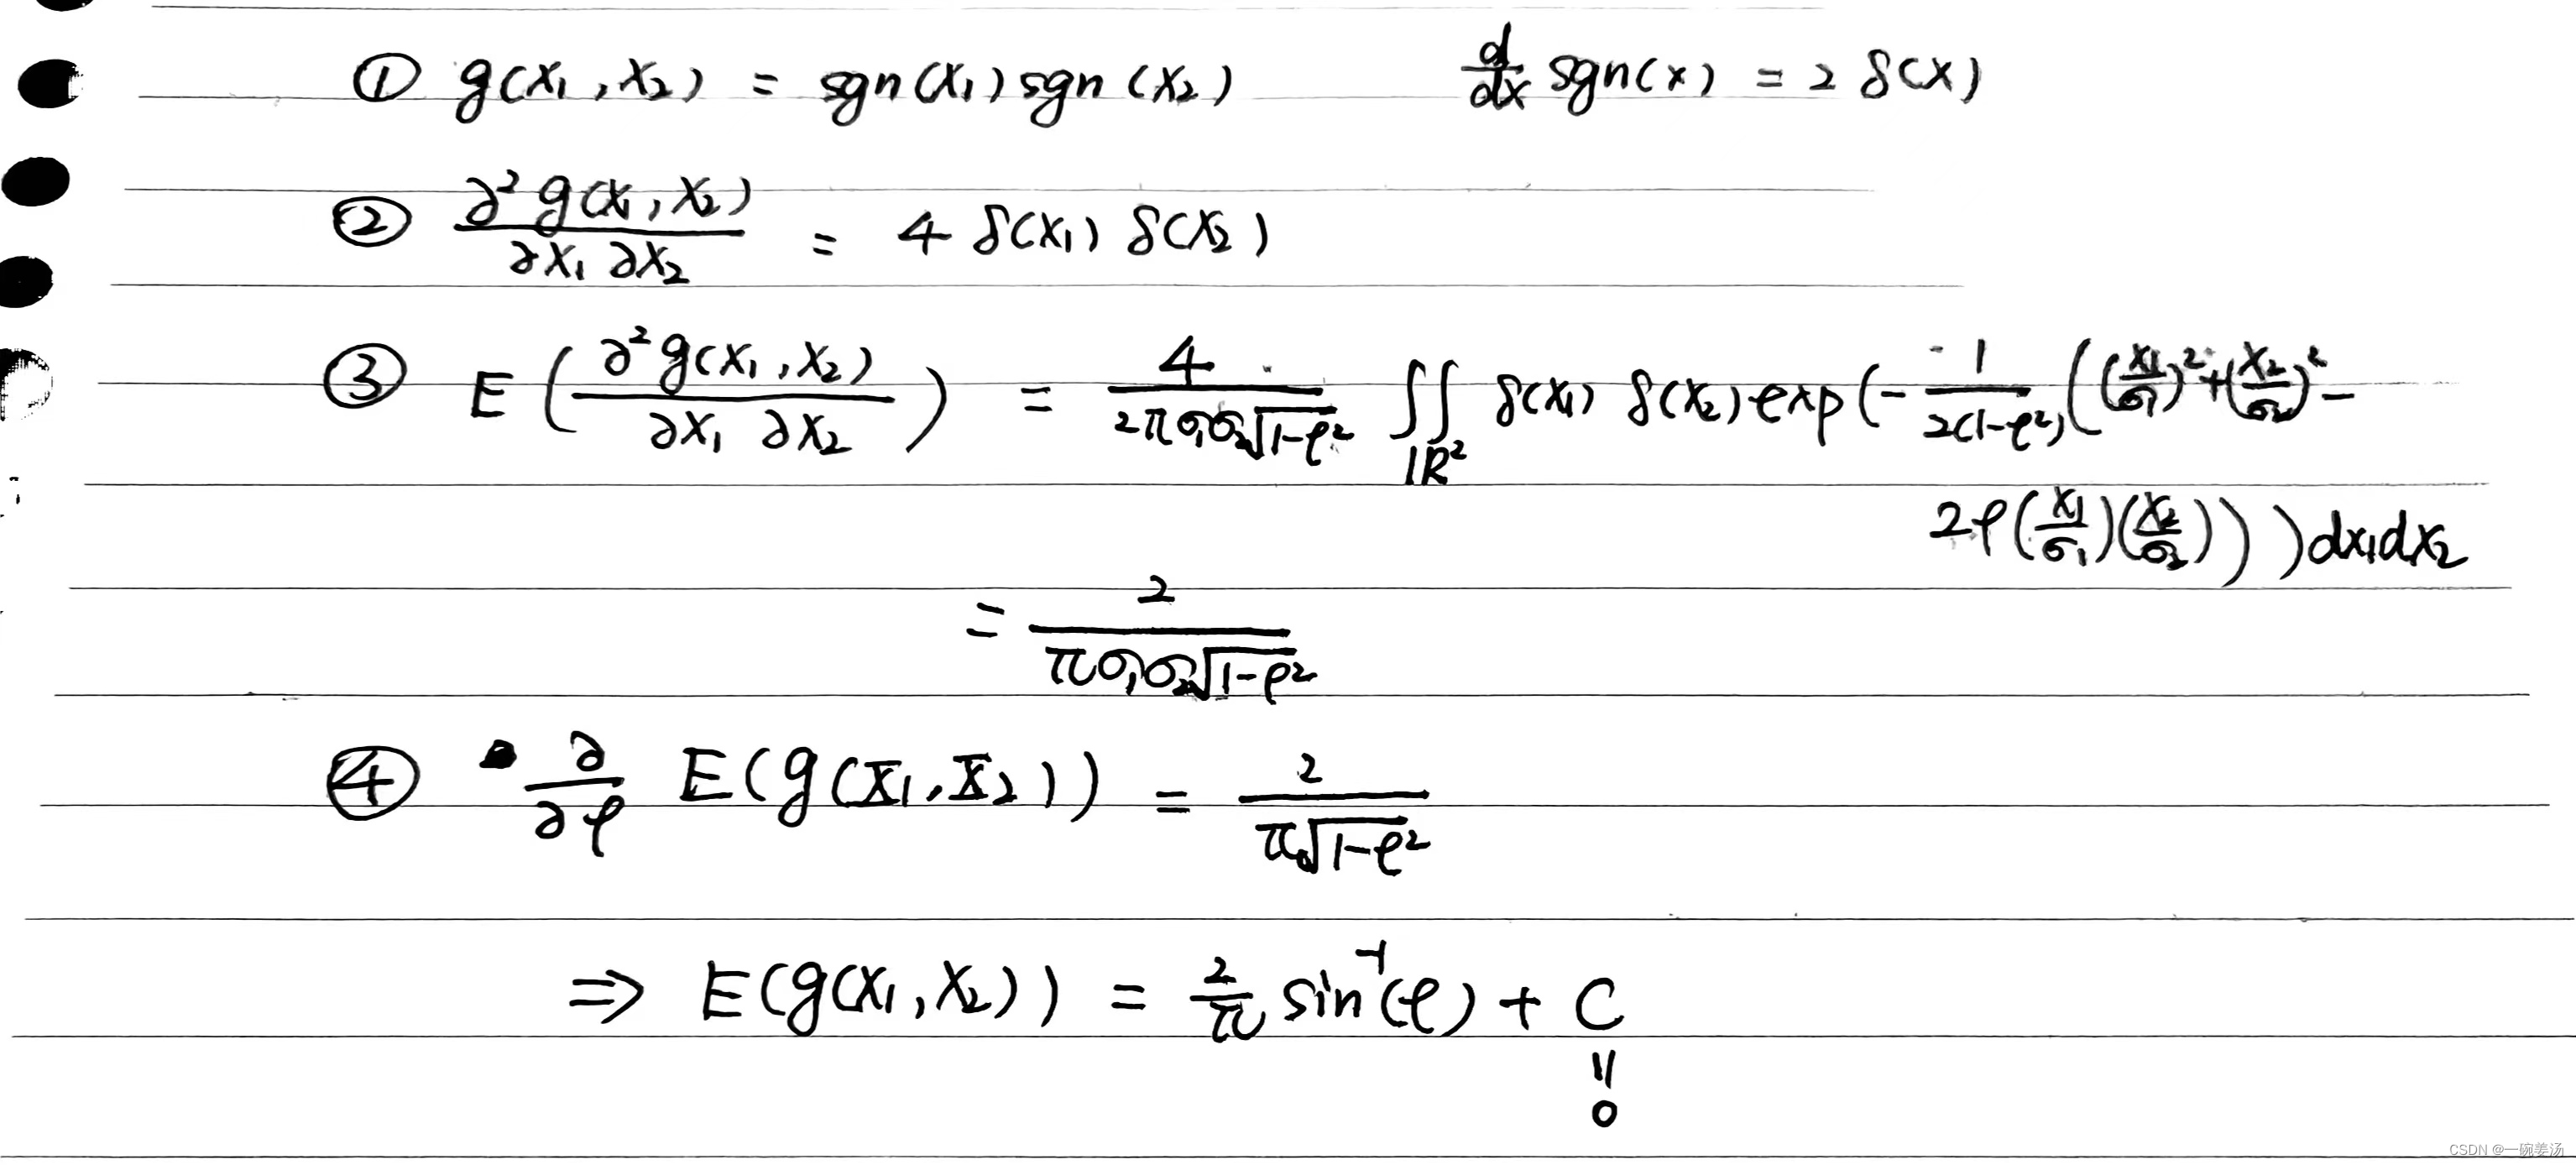 ① g(x₁, x₂) = sgn(x₁) sgn(x₂)    d/dx sgn(x) = 2 δ(x)
② ∂²g(x₁, x₂)/∂x₁ ∂x₂ = 4 δ(x₁) δ(x₂)
③ E(∂²g(x₁, x₂)/∂x₁ ∂x₂) = 4/(2πσ₁σ₂√(1-ρ²)) ∬_ℝ² δ(x₁) δ(x₂) exp(- 1/(2(1-ρ²)) ((x₁/σ₁)² + (x₂/σ₂)² -
2ρ(x₁/σ₁)(x₂/σ₂))) dx₁dx₂
= 2/(πσ₁σ₂√(1-ρ²))
④ ∂/∂ρ E(g(X₁, X₂)) = 2/(π√(1-ρ²))
⇒ E(g(x₁, x₂)) = 2/π sin⁻¹(ρ) + C
॥
0
CSDN @一碗姜汤